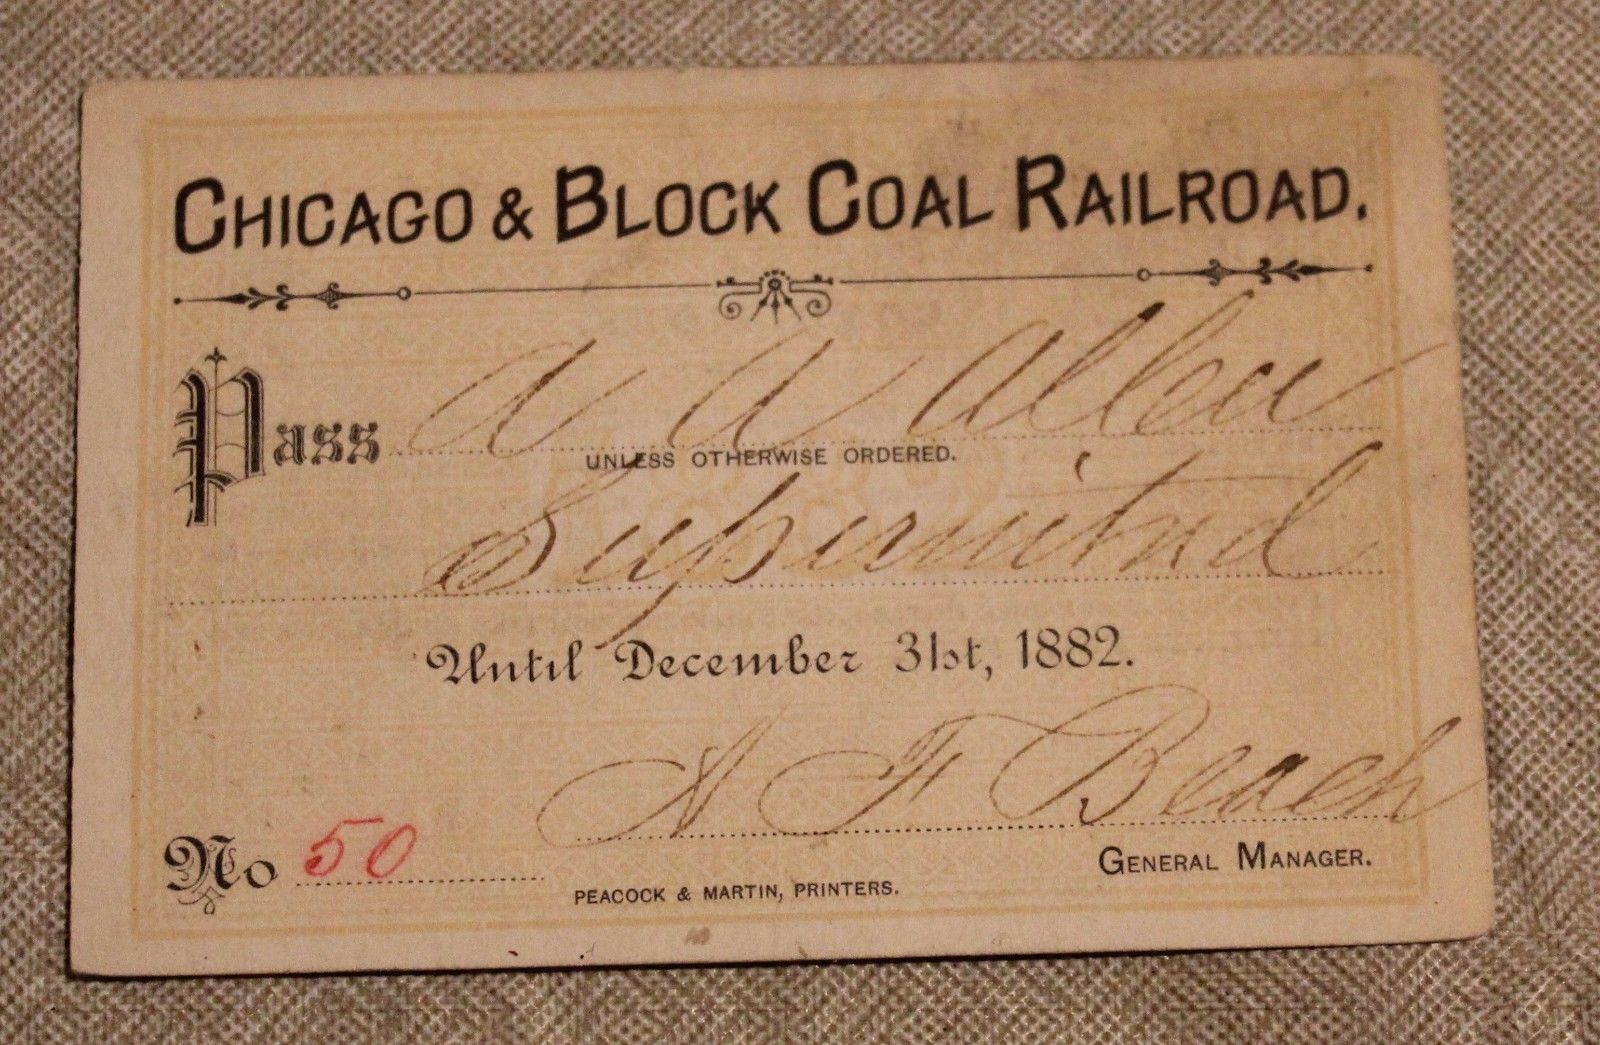 CHICAGO & BLOCK COAL RAILROAD.
Pass A A Allen
UNLESS OTHERWISE ORDERED.
Superintnd
Until December 31st, 1882.
A F Beach
No 50
GENERAL MANAGER.
PEACOCK & MARTIN, PRINTERS.